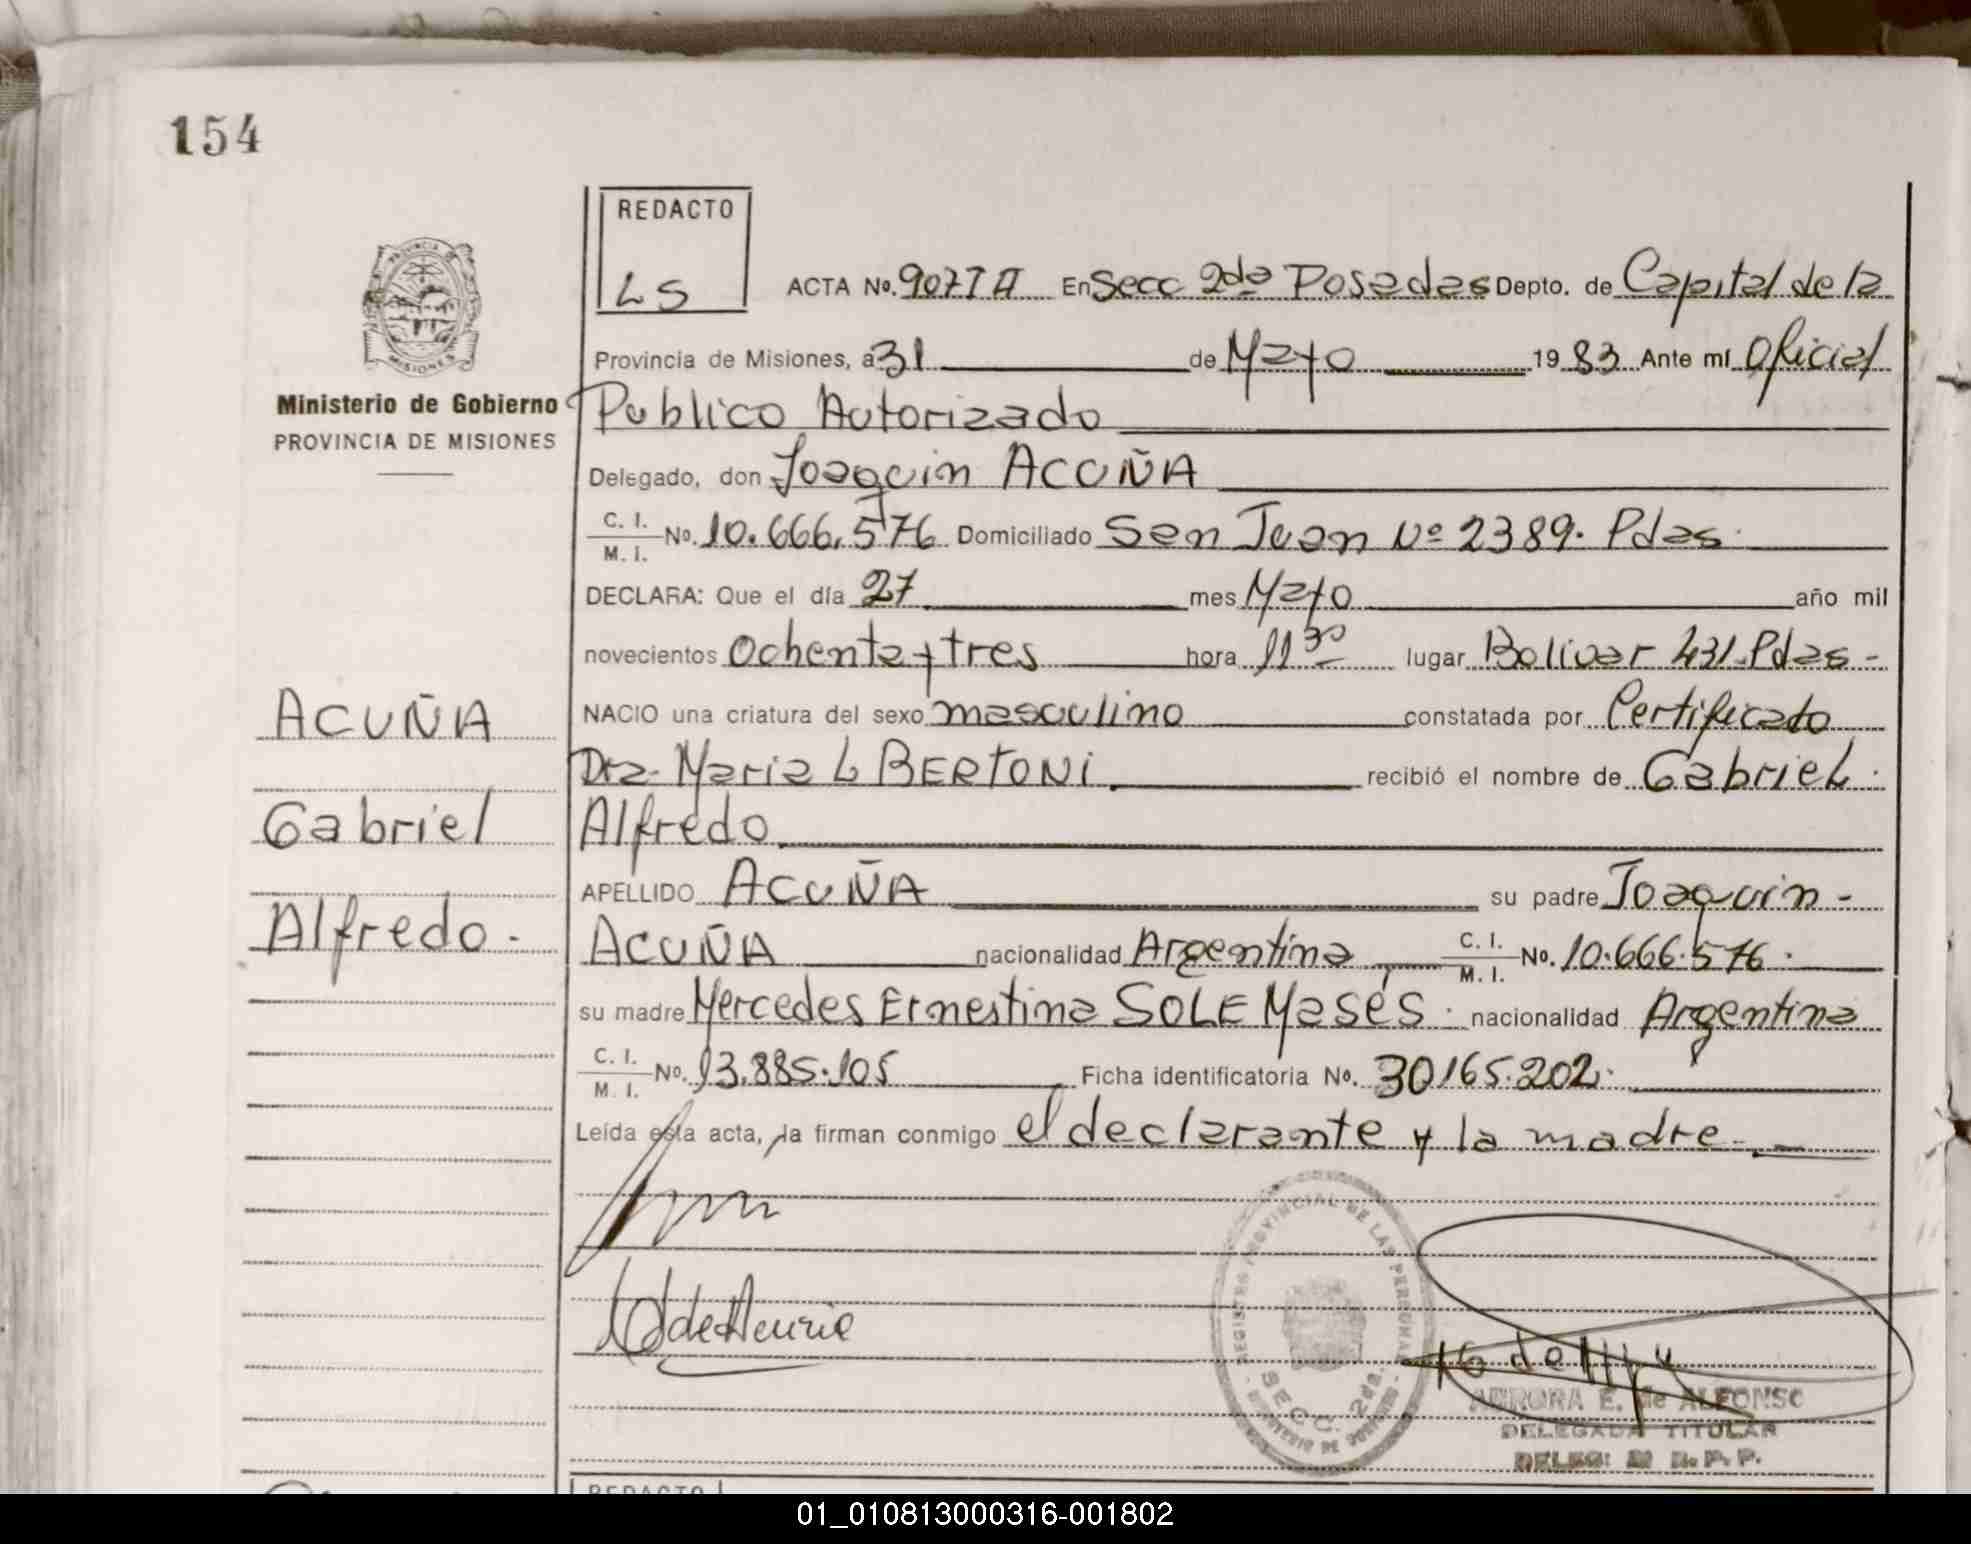 154
REDACTO
LS
ACTA No. 9077 A En Secc 2da Posadas Depto. de Capital de la
Provincia de Misiones, a 31 de Mayo 1983 Ante mí Oficial
Ministerio de Gobierno
PROVINCIA DE MISIONES
Publico Autorizado
Delegado, don Joaquin ACUÑA
C. I.
M. I. No. 10.666.576 Domiciliado San Juan Nº 2389. Pdas.
DECLARA: Que el día 27 mes Mayo año mil
novecientos Ochenta y tres hora 11 30 lugar Bolivar 431. Pdas -
NACIO una criatura del sexo masculino constatada por Certificato
Dra. Maria L BERTONI recibió el nombre de Gabriel.
Alfredo
APELLIDO ACUÑA su padre Joaquin -
ACUÑA nacionalidad Argentina C. I.
M. I. No. 10.666.576.
su madre Mercedes Ernestina SOLE Masés. nacionalidad Argentina
C. I.
M. I. No. 13.885.105 Ficha identificatoria No. 30165.202.
Leída esta acta, la firman conmigo el declarante y la madre. -
ACUÑA
Gabriel
Alfredo.
REGISTRO PROVINCIAL DE LAS PERSONAS
SECC. 2da.
MINISTERIO DE GOBIERNO
AURORA E. de ALFONSO
DELEGADA TITULAR
REDACTO
01_010813000316-001802